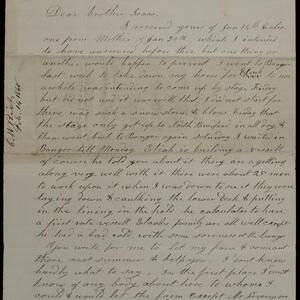 Dear brother Isaac
I received yours of Jan 14th & also
one from Mother of Jan 30th which I intended
to have answered before this but one thing or
another would happen to prevent. I went to Bangor
last week to take down my horse for Eliah to
intending to come up by stage Friday
but did not as it was well that I did not start for
there was such a snow storm & blow Friday that
the stage only got up to North Bangor all day &
then went back to Bangor again Saturday I waited in
Bangor till Monday. Eliah is building a vessell of
course he told you about it they are a getting
along very well with it there were about 25 men
to work upon it when I was down to see it they were
laying down & caulking the lower deck & putting
in the lining in the hold he calculates to have
a first rate vessell Eliah's family are all well except
he had a bad cold with some soreness at the lungs
You write for me to let my farm & come out
there next summer & help you. I dont know
hardly what to say. In the first place I dont
know of any body about here to whom I
could & would let the farm except to
Feb. 14 1840